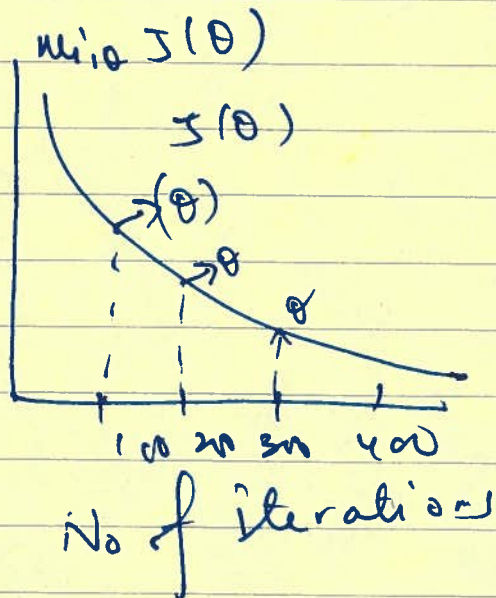 min J(θ)
J(θ)
(θ)
θ
θ
100 200 300 400
No of iterations